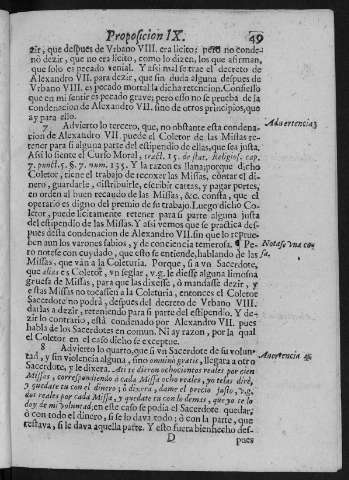 Proposicion IX. 49
zir, que despues de Vrbano VIII. era licito: pero no conde-
nò dezir, que no era licito, como lo dizen, los que afirman,
que solo es pecado venial. Y assi mal se trae el decreto de
Alexandro VII. para dezir, que sin duda alguna despues de
Vrbano VIII. es pecado mortal la dicha retencion. Confiesso
que en mi sentir es pecado grave; pero esso no se prueba de la
condenacion de Alexandro VII. sino de otros principios, que
ay para ello.
7 Advierto lo tercero, que, no obstante esta condena-
cion de Alexandro VII. puede el Coletor de las Missas re-
tener para si alguna parte del estipendio de ellas, que sea justa.
Assi lo siente el Curso Moral, tract. 15. de stat. Religios. cap.
7. punct. 5. §. 7. num. 135. Y la razon es llana; porque dicho
Coletor, tiene el trabajo de recoxer las Missas, contar el di-
nero, guardarle, distribuirle, escribir cartas, y pagar portes,
en orden al buen recaudo de las Missas, &c. consta, que el
operario es digno del premio de su trabajo. Luego dicho Co-
letor, puede licitamente retener para si parte alguna justa
del estipendio de las Missas. Y assi vemos que se practica des-
pues desta condenacion de Alexandro VII. sin que lo reprue-
ben aun los varones sabios, y de conciencia temerosa. ¶ Pe-
ro notese con cuydado, que esto se entiende, hablando de las
Missas, que vàn a la Coleturia. Porque, si a vn Sacerdote,
que alias es Coletor, vn seglar, v.g. le diesse alguna limosna
gruesa de Missas, para que las dixesse, ò mandasse dezir, y
estas Missas no tocassen a la Coleturia, entonces el Coletor
Sacerdote no podrà, despues del decreto de Vrbano VIII.
darlas a dezir, reteniendo para si parte del estipendio. Y de-
zir lo contrario, està condenado por Alexandro VII. pues
habla de los Sacerdotes en comun. Ni ay razon, por la qual
el Coletor en el caso dicho se exceptue.
8 Advierto lo quarto, que si vn Sacerdote de su volun-
tad, y sin violencia alguna, sino omnino gratis, llegara a otro
Sacerdote, y le dixera. A ti te dieron ochocientos reales por cien
Missas, correspondiendo à cada Missa ocho reales, yo telas dirè,
y quedate tu con el dinero; ò dixera, dame el precio justo, v.g.
dos reales por cada Missa, y quedate tu con lo demàs, que yo te lo
doy de mi voluntad, en este caso se podia el Sacerdote quedar,
ò con todo el dinero, si se lo dava todo; ò con la parte, que
restava, si le dava aquella parte. Y esto fuera bien hecho des-
D pues
Advertencia 3
Notese vna co-
sa.
Advertencia 4.